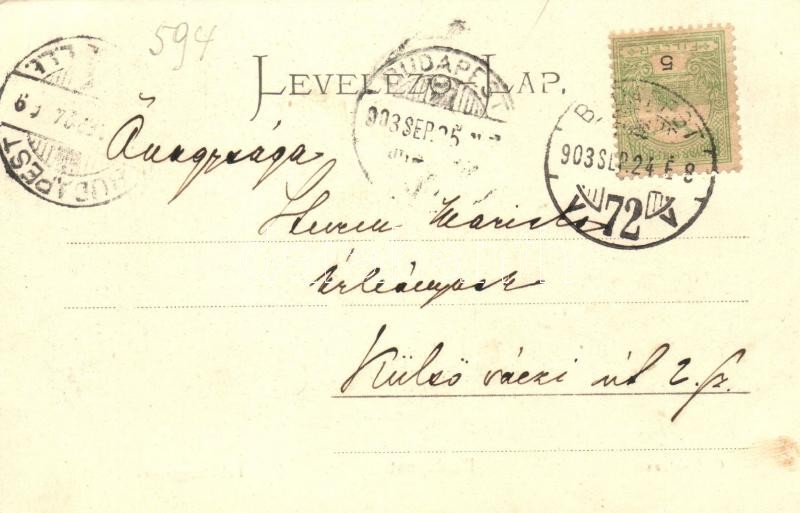 594
LEVELEZŐ LAP.
FILLÉR
5
BUDAPEST
903 SEP. 25
BUDAPEST
903 SEP. 24
72
BUDAPEST
Őnagysága
Sturm Mariska
úrleánynak
Külső váczi út 2. sz.